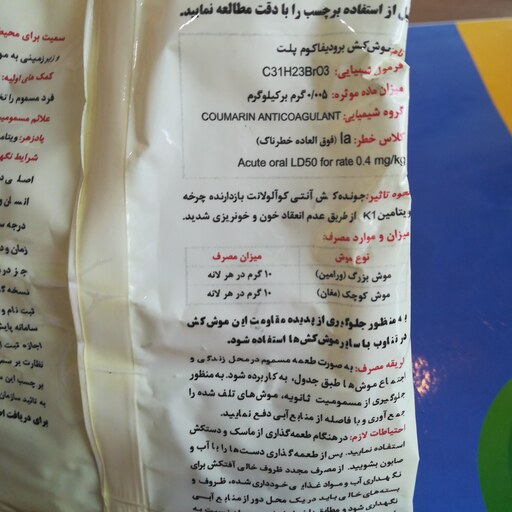 از استفاده برچسب را با دقت مطالعه نمایید.
نام: موش‌کش برودیفاکوم پلت
فرمول شیمیایی: C31H23BrO3
میزان ماده موثره: ۰/۰۰۵ گرم برکیلوگرم
گروه شیمیایی: COUMARIN ANTICOAGULANT
کلاس خطر: Ia (فوق العاده خطرناک)
Acute oral LD50 for rate 0.4 mg/kg
نحوه تاثیر: جونده‌کش آنتی کوآلولانت بازدارنده چرخه
ویتامین K1 از طریق عدم انعقاد خون و خونریزی شدید.
میزان و موارد مصرف:
نوع موش میزان مصرف
موش بزرگ (ورامین) ۱۰ گرم در هر لانه
موش کوچک (مغان) ۱۰ گرم در هر لانه
به منظور جلوگیری از پدیده مقاومت این موش‌کش
در تناوب با سایر موش‌کش‌ها استفاده شود.
طریقه مصرف: به صورت طعمه مسموم در محل زندگی و
اجتماع موش‌ها طبق جدول، به کار برده شود. به منظور
جلوگیری از مسمومیت ثانویه، موش‌های تلف شده را
جمع‌آوری و با فاصله از منابع آبی دفع نمایید.
احتیاطات لازم: در هنگام طعمه‌گذاری از ماسک و دستکش
استفاده نمایید. پس از طعمه‌گذاری دست‌ها را با آب و
صابون بشویید. از مصرف مجدد ظروف خالی آفتکش برای
نگهداری آب و مواد غذایی خودداری شده، ظروف و
بسته‌های خالی باید در یک محل دور از منابع آبی
سمیت برای محیط
و زیرزمینی به مو
کمک های اولیه:
فرد مسموم را تح
علائم مسمومیت
پادزهر: ویتامی
شرایط نگه
اصلی در
انسان و
درجه س
زمان ورود
چز در
نسخه گ
ثبت نام و
سامانه پایش
نظارت بر سم
بر چسب این س
به تائید سازمان
برای دریافت اط